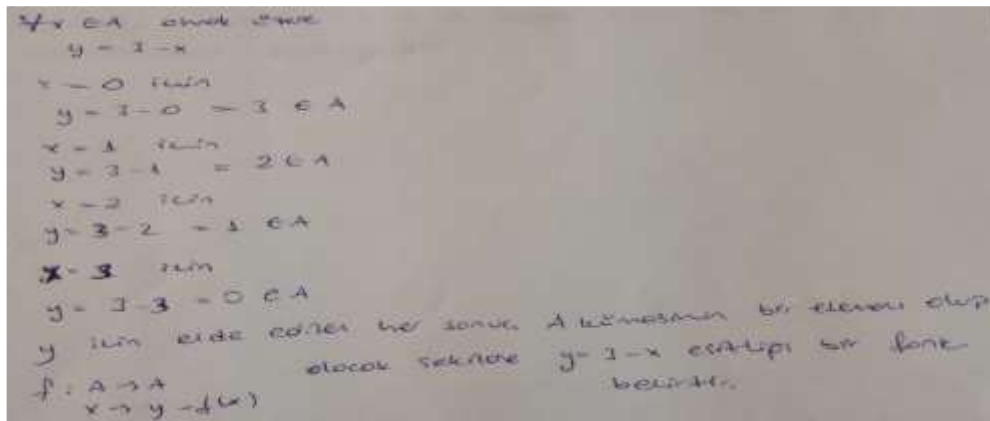 ∀x ∈ A olmak üzere
y = 3 - x
x = 0 için
y = 3 - 0 = 3 ∈ A
x = 1 için
y = 3 - 1 = 2 ∈ A
x = 2 için
y = 3 - 2 = 1 ∈ A
x = 3 için
y = 3 - 3 = 0 ∈ A
y için elde edilen her sonuç A kümesinin bir elemanı olup
f : A → A olacak şekilde y = 3 - x eşitliği bir fonk
x → y = f(x) belirtir.